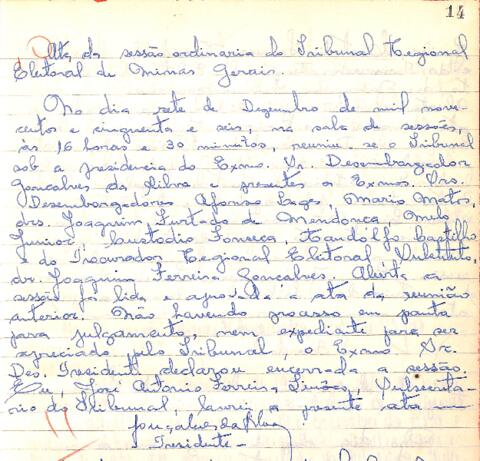 14
Ata da sessão ordinaria do Tribunal Regional
Eleitoral de Minas Gerais.
No dia sete de Dezembro de mil nove-
centos e cinquenta e seis, na sala de sessões,
às 16 horas e 30 minutos, reuniu-se o Tribunal
sob a presidencia do Exmo. Sr. Desembargador
Gonçalves da Silva e presentes os Exmos. Srs.
Desembargadores Afonso Lages, Mario Matos,
drs. Joaquim Furtado de Mendonça, Melo
Junior, Custodio Fonseca, Randolfo Castilho
e do Procurador Regional Eleitoral, Substituto,
dr. Joaquim Ferreira Gonçalves. Aberta a
sessão foi lida e aprovada a ata da reunião
anterior. Não havendo processo em pauta
para julgamento, nem expediente para ser
apreciado pelo Tribunal, o Exmo. Sr.
Des. Presidente declarou encerrada a sessão.
Eu, José Antonio Ferreira Simões, Subsecretá-
rio do Tribunal, lavrei a presente ata
Gonçalves da Silva
Presidente